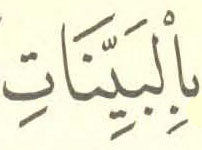 بِالْبَيِّنَاتِ